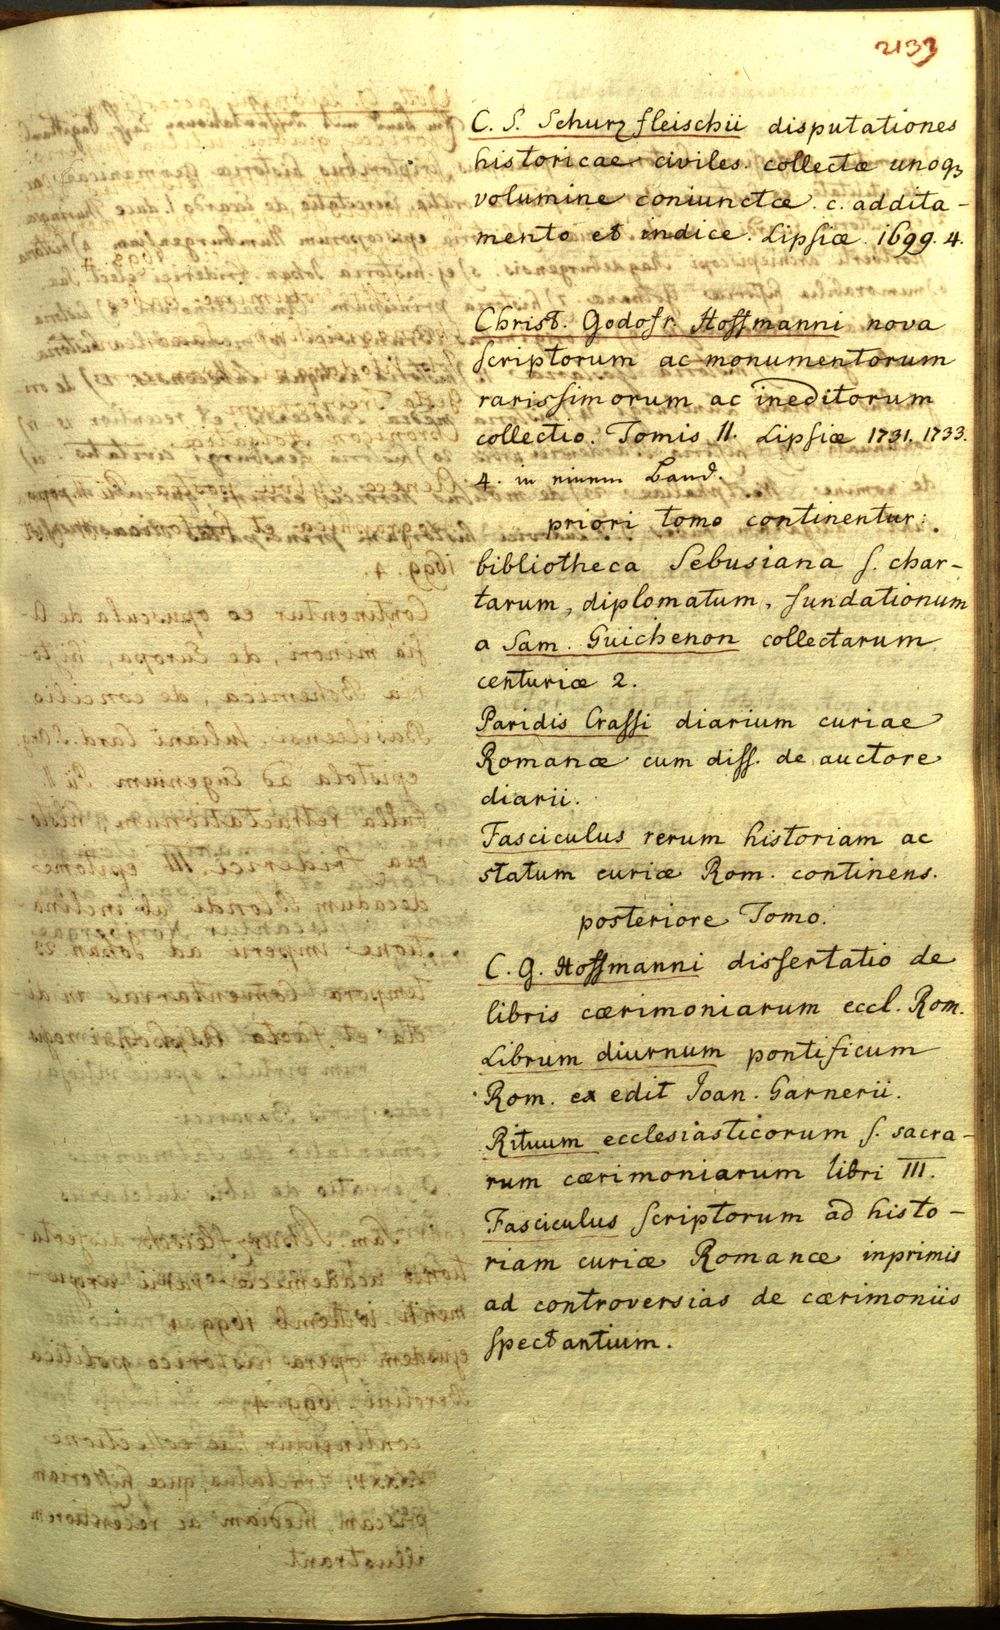 2133
C. S. Schurzfleischii disputationes
historicae civiles collectæ unoqz
volumine coniunctæ c. addita-
mento et indice. Lipsiæ 1699. 4.
Christ. Godofr. Hoffmanni nova
scriptorum ac monumentorum
rarissimorum ac ineditorum
collectio. Tomis II. Lipsiæ 1731. 1733.
4. in einem Band.
priori tomo continentur:
bibliotheca Sebusiana s. char-
tarum, diplomatum, fundationum
a Sam. Guichenon collectarum
centuriæ 2.
Paridis Crassi diarium curiae
Romanæ cum diss. de auctore
diarii.
Fasciculus rerum historiam ac
statum curiæ Rom. continens.
posteriore Tomo.
C. G. Hoffmanni dissertatio de
libris cærimoniarum eccl. Rom.
Librum diurnum pontificum
Rom. ex edit Ioan. Garnerii.
Rituum ecclesiasticorum s. sacra-
rum cærimoniarum libri III.
Fasciculus scriptorum ad histo-
riam curiæ Romanæ inprimis
ad controversias de cærimoniis
spectantium.